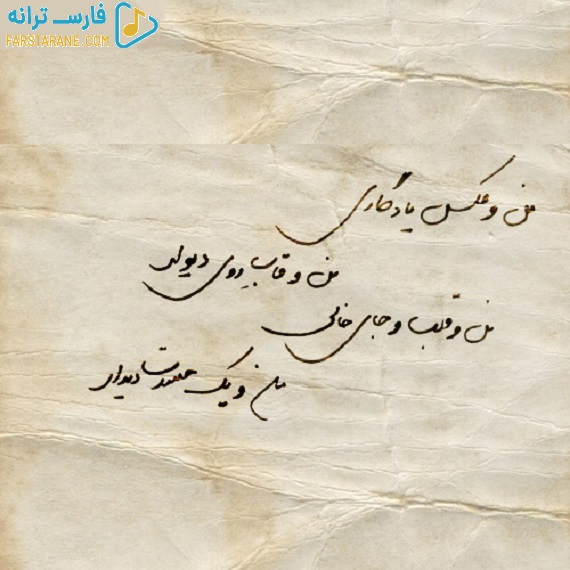 فارس ترانه
FARSTARANE.COM
من و عکس یادگاری
من و قاب روی دیوار
من و قلب و جای خالی
من و یک دیدار